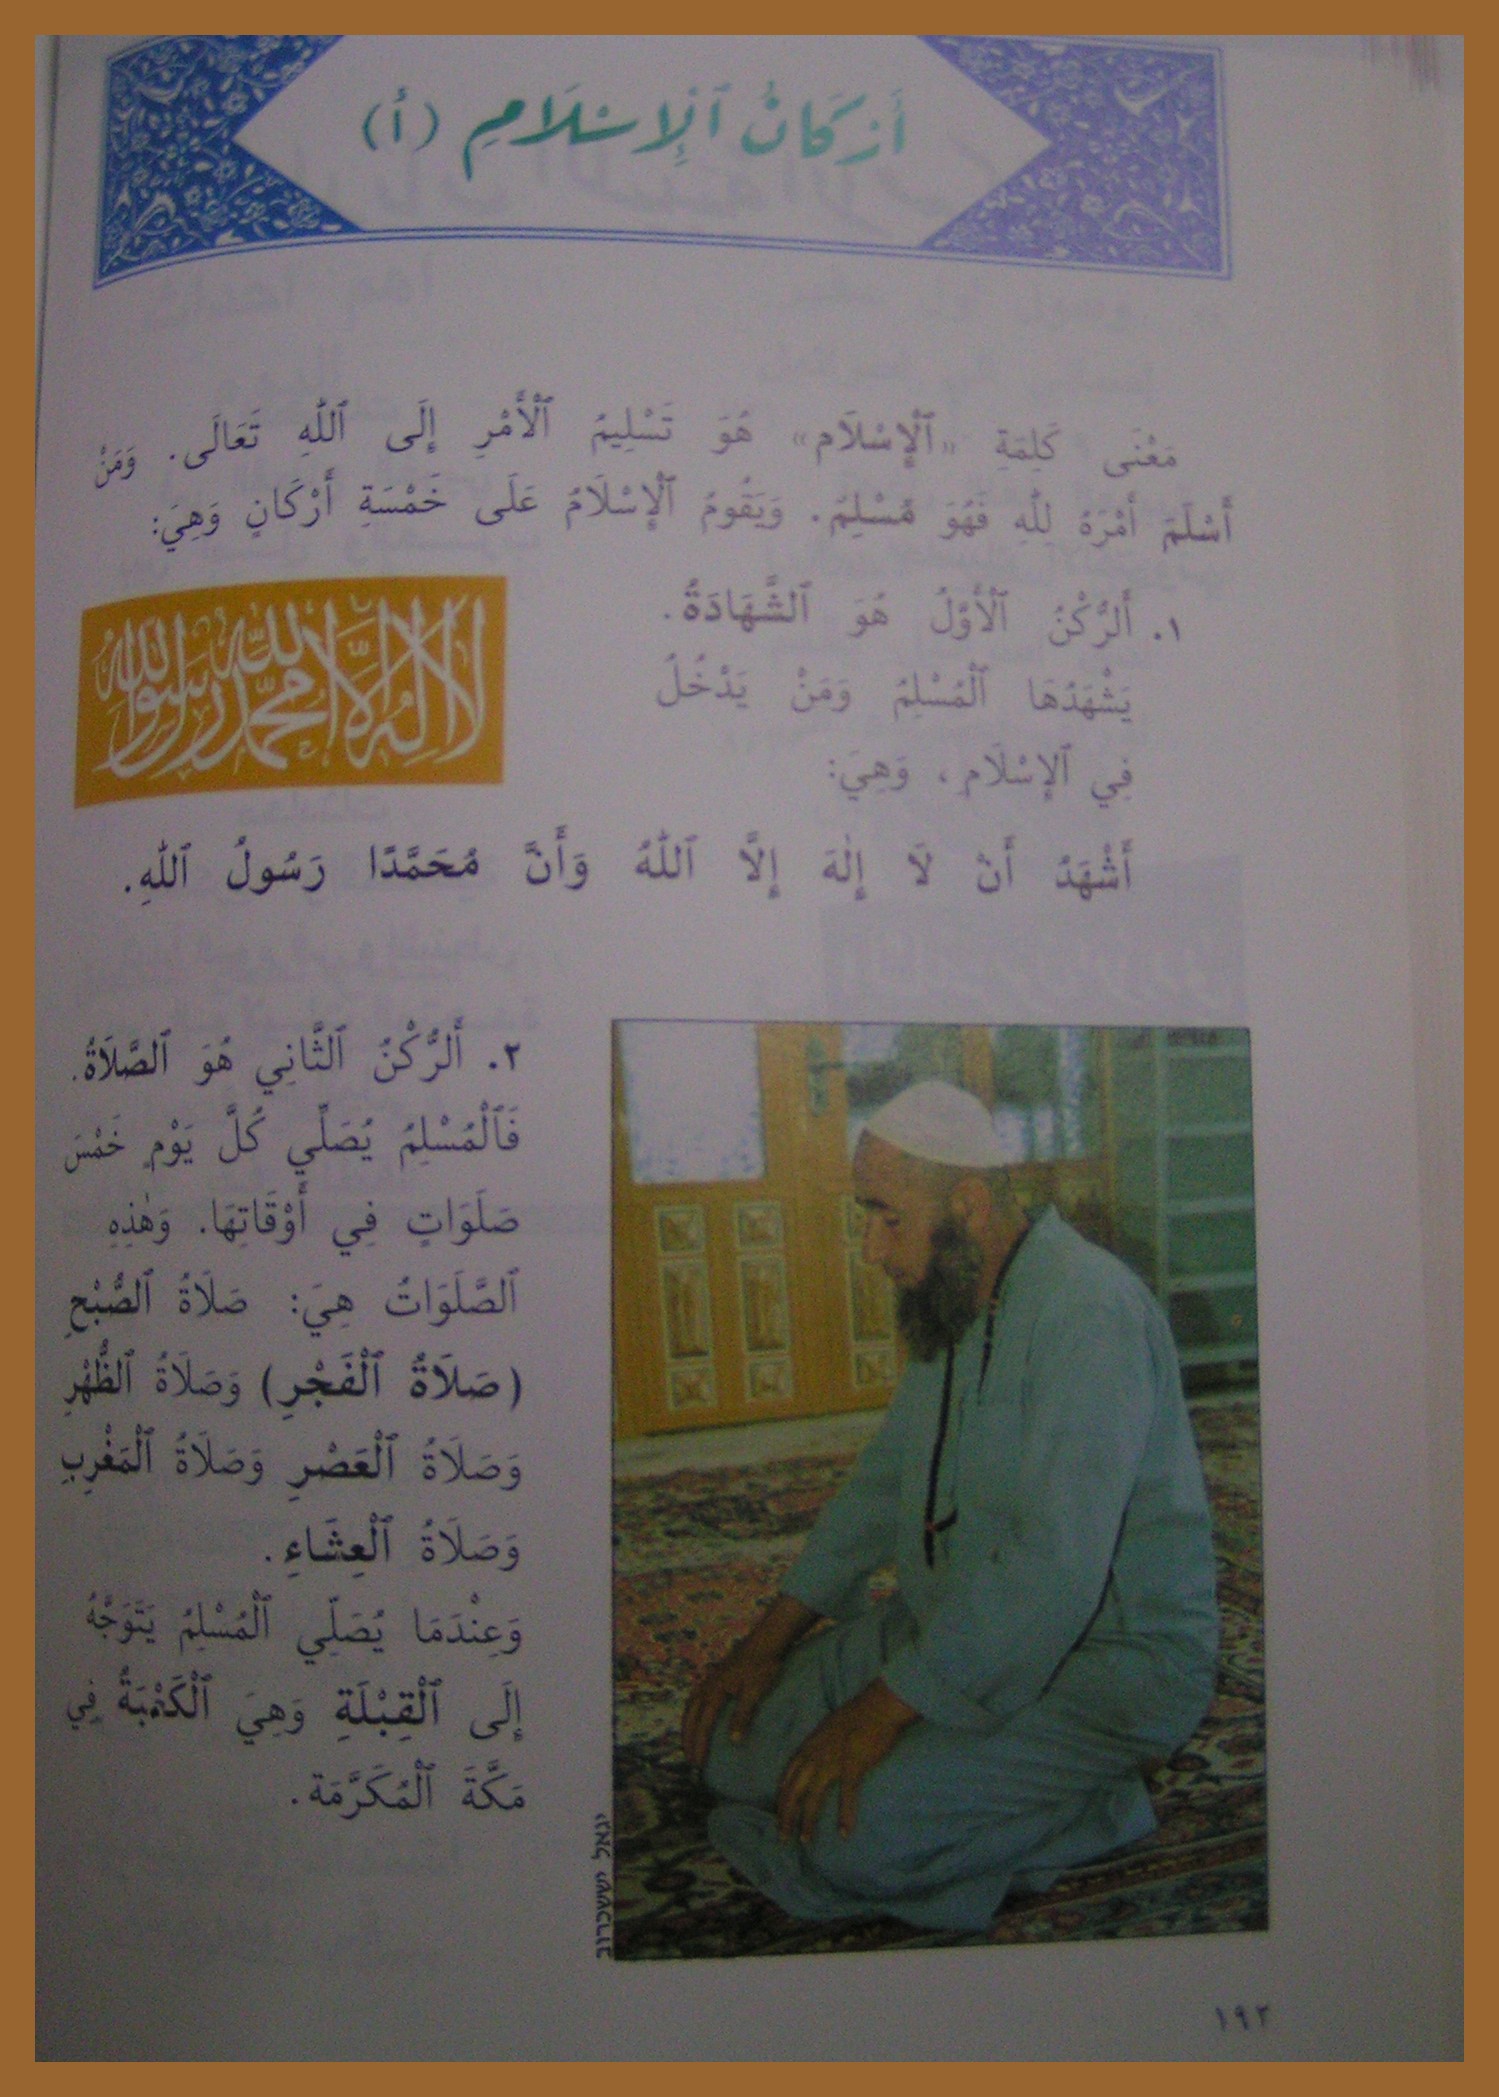 أَرْكَانُ ٱلْإِسْلَامِ (أ)
مَعْنَى كَلِمَةِ «ٱلْإِسْلَام» هُوَ تَسْلِيمُ ٱلْأَمْرِ إِلَى ٱللّٰهِ تَعَالَى. وَمَنْ
أَسْلَمَ أَمْرَهُ لِلّٰهِ فَهُوَ مُسْلِمٌ. وَيَقُومُ ٱلْإِسْلَامُ عَلَى خَمْسَةِ أَرْكَانٍ وَهِيَ:
١. أَلرُّكْنُ ٱلْأَوَّلُ هُوَ ٱلشَّهَادَةُ.
يَشْهَدُهَا ٱلْمُسْلِمُ وَمَنْ يَدْخُلُ
فِي ٱلْإِسْلَام، وَهِيَ:
لا إله إلا الله محمد رسول الله
أَشْهَدُ أَنْ لَا إِلٰهَ إِلَّا ٱللّٰهُ وَأَنَّ مُحَمَّدًا رَسُولُ ٱللّٰهِ.
٢. أَلرُّكْنُ ٱلثَّانِي هُوَ ٱلصَّلَاةُ.
فَٱلْمُسْلِمُ يُصَلِّي كُلَّ يَوْمٍ خَمْسَ
صَلَوَاتٍ فِي أَوْقَاتِهَا. وَهٰذِهِ
ٱلصَّلَوَاتُ هِيَ: صَلَاةُ ٱلصُّبْحِ
(صَلَاةُ ٱلْفَجْرِ) وَصَلَاةُ ٱلظُّهْرِ
وَصَلَاةُ ٱلْعَصْرِ وَصَلَاةُ ٱلْمَغْرِبِ
وَصَلَاةُ ٱلْعِشَاءِ.
وَعِنْدَمَا يُصَلِّي ٱلْمُسْلِمُ يَتَوَجَّهُ
إِلَى ٱلْقِبْلَةِ وَهِيَ ٱلْكَعْبَةُ فِي
مَكَّةَ ٱلْمُكَرَّمَة.
יגאל יששכרוב
١٩٢